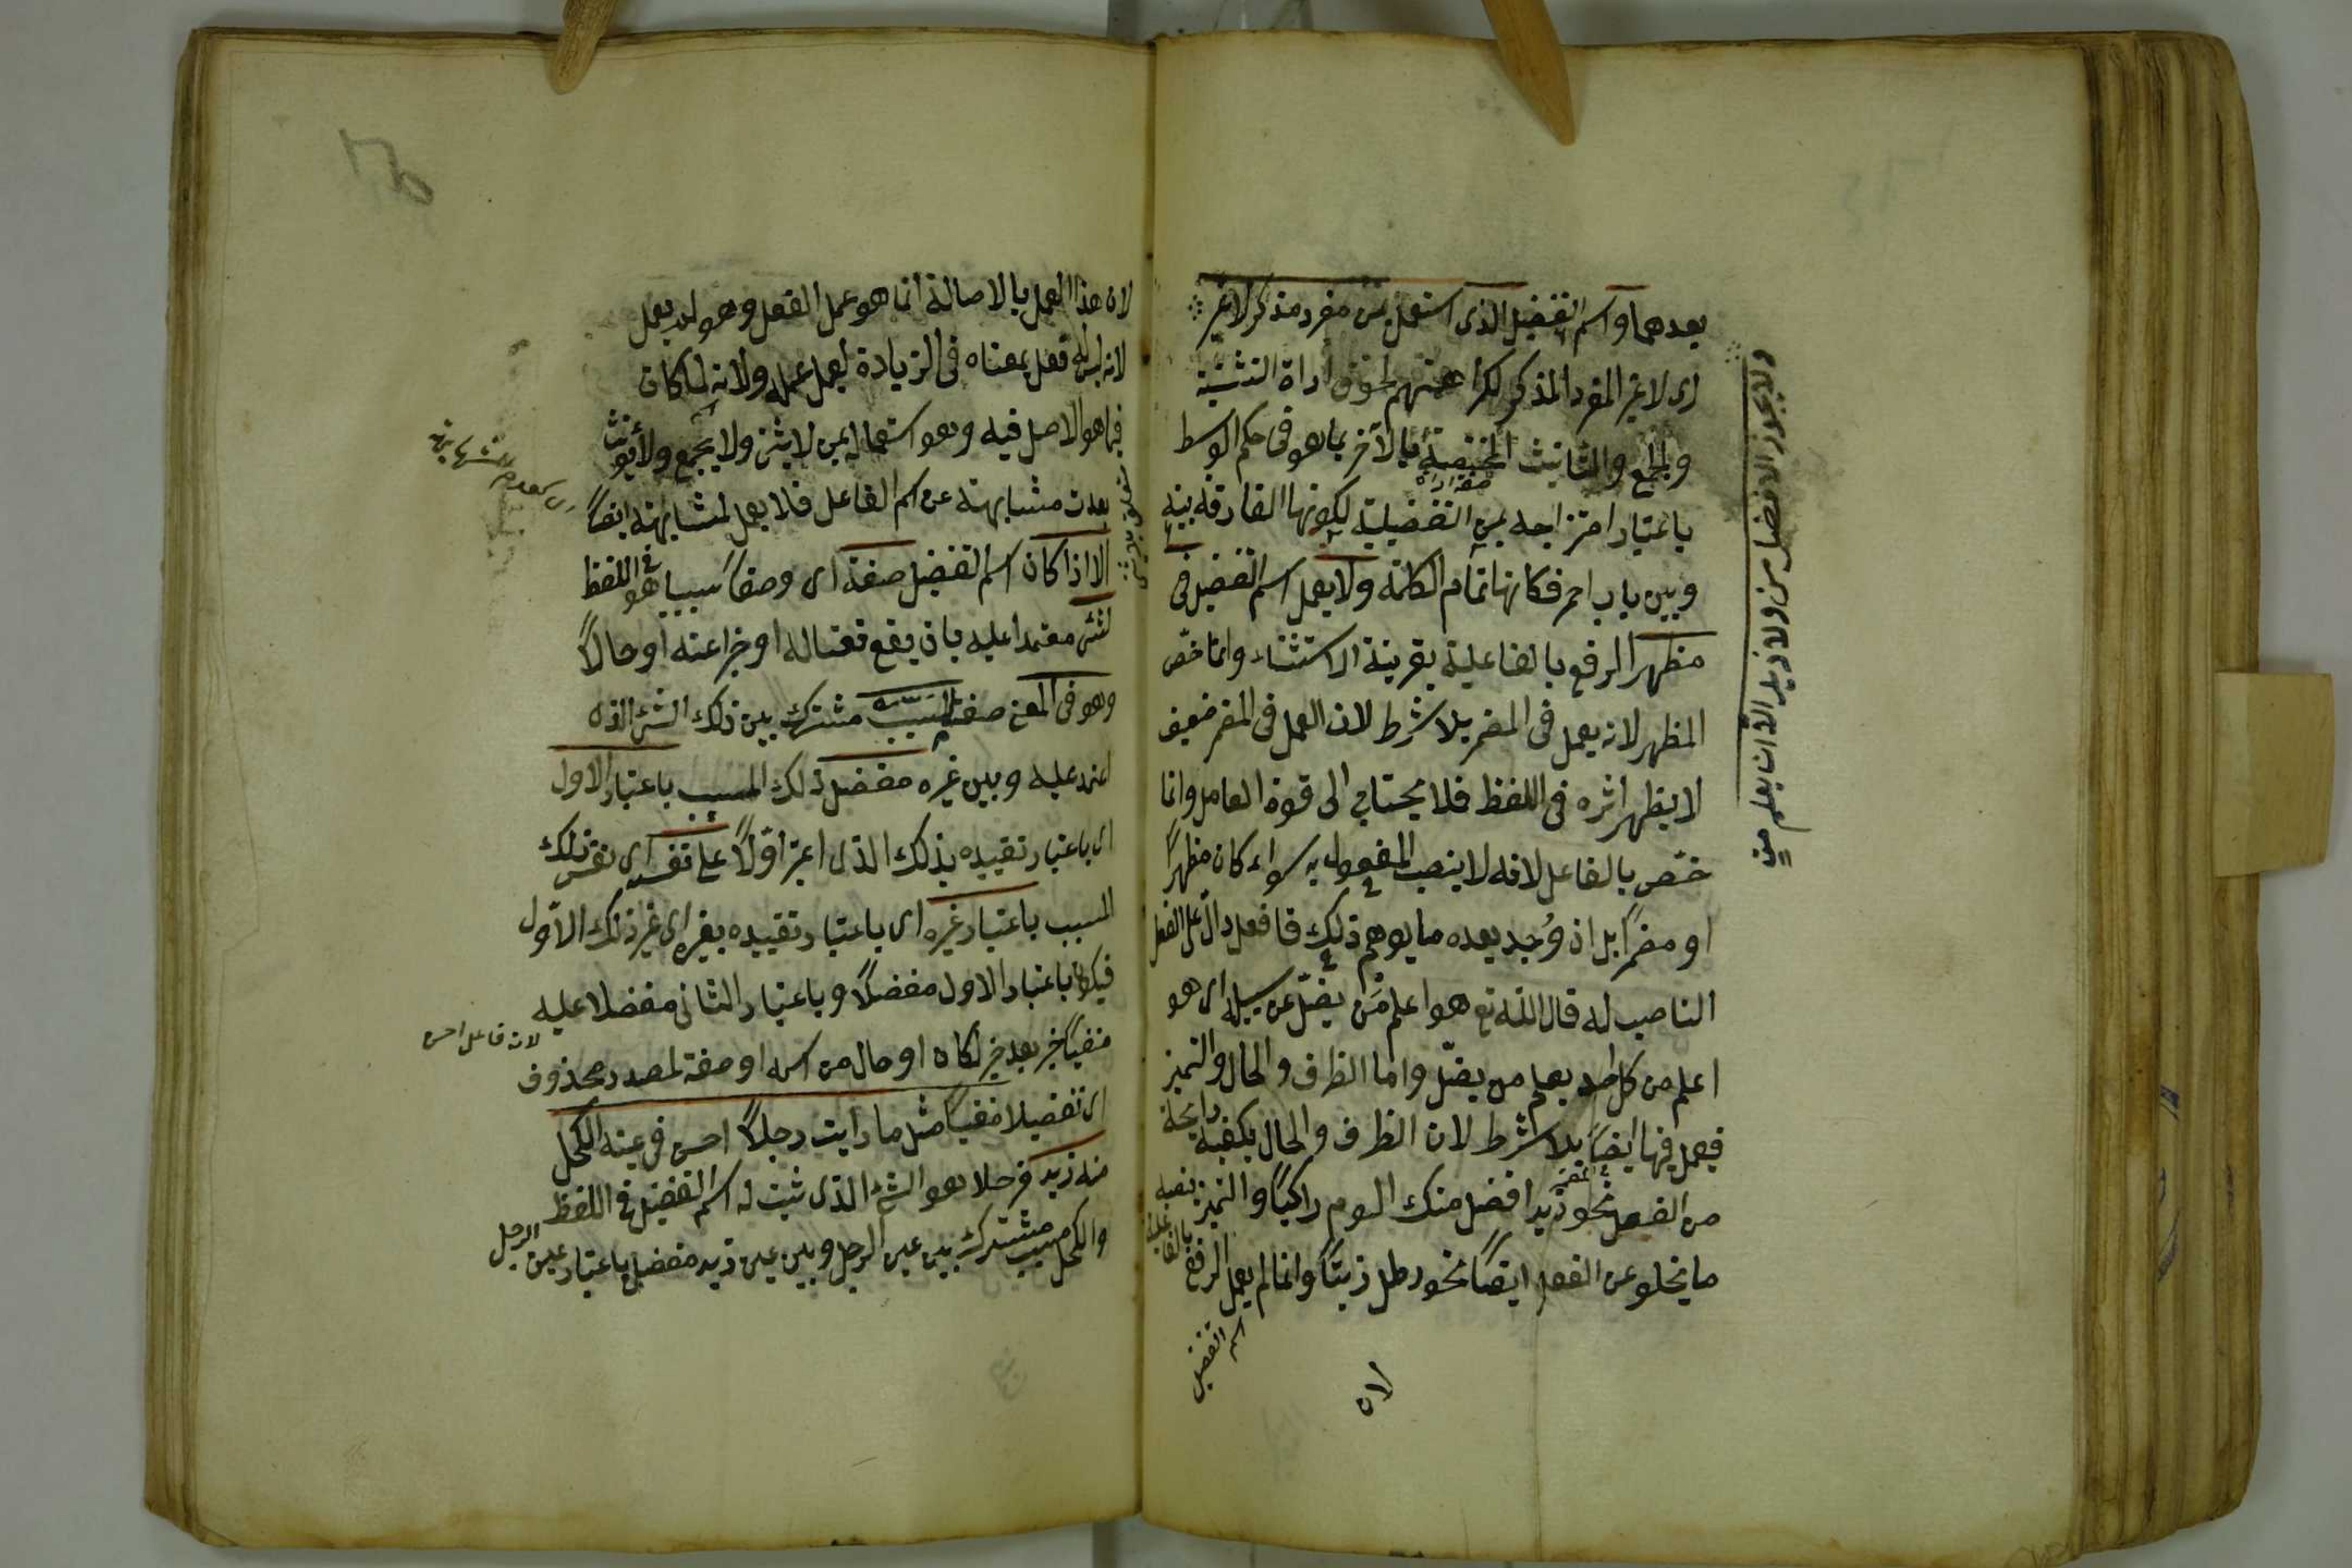 بعدهما واسم التفضيل الذى استعمل بمن مفرد مذكر لا غير
اى لا غير المفرد المذكر لكراهتهم لحوق اداة التثنية
والجمع والتانيث المختصة بالآخر بما هو فى حكم الوسط
باعتبار امتزاجه بمن التفضيلية لكونها الفارقة بينه
وبين باب احمر فكانها تمام الكلمة ولا يعمل اسم التفضيل فى
مظهر الرفع بالفاعلية بقرينة الاستثناء وانما خصّ
المظهر لانه يعمل فى المضمر بلا شرط لان العمل فى المضمر ضعيف
لا يظهر اثره فى اللفظ فلا يحتاج الى قوة العامل وانما
خصّ بالفاعل لانه لا ينصب المفعول به سواء كان مظهرًا
او مضمرًا بل اذ وُجد بعده ما يوهم ذلك فافعل دالّ على الفعل
الناصب له قال الله تع هو اعلم مَن يضلّ عن سبيله اى هو
اعلم من كل احد يعلم من يضلّ واما الظرف والحال والتميز
فيعمل فيها ايضا بلا شرط لان الظرف والحال يكفيه رايحة
من الفعل نحو زيد افضل منك اليوم راكبًا والتميز ينصبه
ما يخلو عن الفعل ايضًا نحو رطل زيتًا وانما لم يعمل الرفع بالفاعلية
اسم التفضيل
لان
ولا يجوز الافضل من ولا زيد الا ان يعلم مِن
لان هذا العمل بالاصالة انما هو عمل الفعل وهو لم يعمل
لانه ليس له فعل بمعناه فى الزيادة ليعمل عمله ولانه لما كان
فيما هو الاصل فيه وهو استعماله بمن لا يثنى ولا يجمع ولا يؤنث
بعدت مشابهته عن اسم الفاعل فلا يعمل لمشابهته ايضًا
الا اذا كان اسم التفضيل صفة اى وصفا سببيا هو فى اللفظ
لشئ معتمدا عليه بان يقع نعتا له او خبرا عنه او حالاً
وهو فى المعنى صفة لمسبب مشترك بين ذلك الشئ الذى
اعتمد عليه وبين غيره مفضل ذلك المسبب باعتبار الاول
اى باعتبار تقييده بذلك الذى اعتبر اوّلاً على نفسه اى نفس ذلك
المسبب باعتبار غيره اى باعتبار تقييده بغيره اى غير ذلك الاول
فيكون باعتبار الاول مفضلاً وباعتبار الثانى مفضلا عليه
منفيًا خبر بعد خبر لكان او حال من اسمه او صفة لمصدر محذوف
لانه فاعل احسن
اى تفضيلا منفيا مثل ما رايت رجلاً احسن فى عينه الكحل
منه فى عين زيد فرجلا هو الشئ الذى ثبت له اسم التفضيل فى اللفظ
والكحل مسبب مشترك بين عين الرجل وبين عين زيد مفضل باعتبار عين الرجل